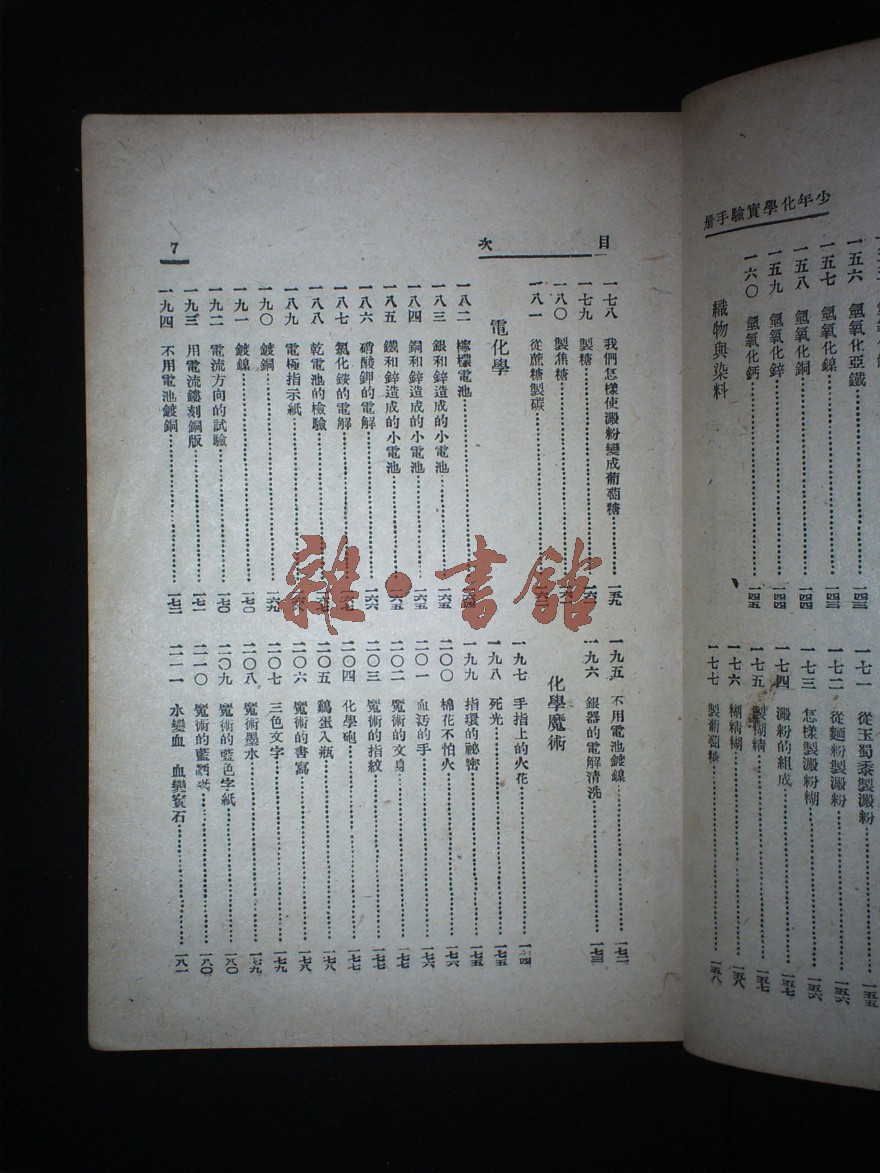 少年化學實驗手册
一五六　氫氧化亞鐵
一五七　氫氧化鎳
一五八　氫氧化銅……一四四
一五九　氫氧化鋅……一四四
一六〇　氫氧化鈣……一四五
織物與染料
一七一　從玉蜀黍製澱粉……一五五
一七二　從麵粉製澱粉……一五六
一七三　怎樣製澱粉糊……一五六
一七四　澱粉的組成……一五七
一七五　製糊精……一五七
一七六　糊精糊……一五八
一七七　製葡萄糖……一五八
目次
7
一七八　我們怎樣使澱粉變成葡萄糖……一五九
一七九　製糖
一八〇　製焦糖
一八一　從蔗糖製碳
電化學
一八二　檸檬電池
一八三　銀和鋅造成的小電池……一六五
一八四　銅和鋅造成的小電池……一六五
一八五　鐵和鋅造成的小電池……一六五
一八六　硝酸鉀的電解……一六六
一八七　氯化銨的電解
一八八　乾電池的檢驗
一八九　電極指示紙
一九〇　鍍銅……一六九
一九一　鍍鎳……一七〇
一九二　電流方向的試驗……一七〇
一九三　用電流鏤刻銅版……一七一
一九四　不用電池鍍銅……一七二
一九五　不用電池鍍鎳……一七二
一九六　銀器的電解清洗……一七三
化學魔術
一九七　手指上的火花……一七四
一九八　死光……一七五
一九九　指環的祕密……一七五
二〇〇　棉花不怕火……一七六
二〇一　血汚的手……一七六
二〇二　魔術的文身……一七七
二〇三　魔術的指紋……一七七
二〇四　化學砲……一七七
二〇五　鷄蛋入瓶……一七八
二〇六　魔術的書寫……一七八
二〇七　三色文字……一七九
二〇八　魔術墨水……一七九
二〇九　魔術的藍色字紙……一八〇
二一〇　魔術的藍酒……一八〇
二一一　水變血　血變寶石……一八一
雜·書館